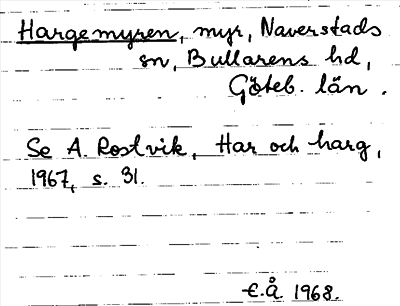 Hargemyren, myr, Naverstads
sn, Bullarens hd,
Göteb. län.
Se A. Rostvik, Har och harg,
1967, s. 31.
E.Å. 1968.